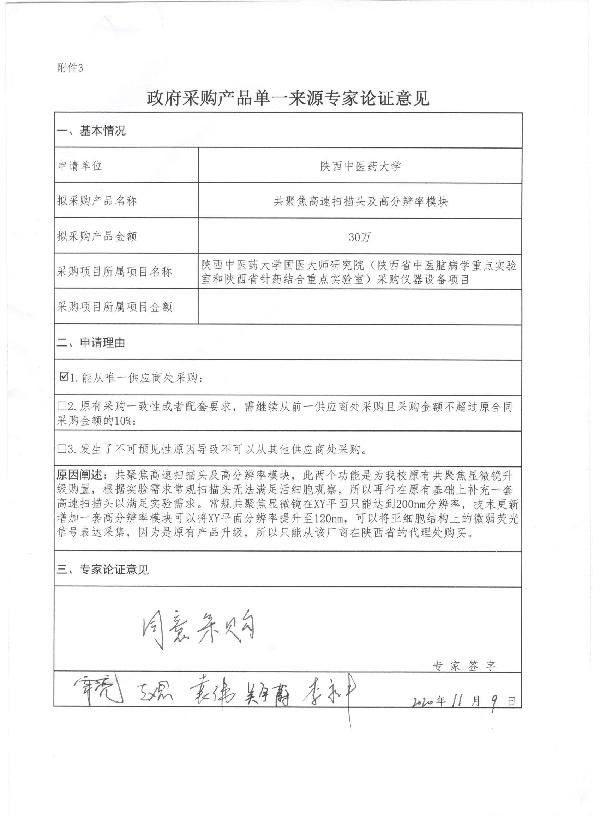 附件3
政府采购产品单一来源专家论证意见
一、基本情况
申请单位 陕西中医药大学
拟采购产品名称 共聚焦高速扫描头及高分辨率模块
拟采购产品金额 30万
采购项目所属项目名称 陕西中医药大学国医大师研究院（陕西省中医脑病学重点实验
室和陕西省针药结合重点实验室）采购仪器设备项目
采购项目所属项目金额
二、申请理由
☑1.能从唯一供应商处采购；
□2.原有采购一致性或者配套要求，需继续从前一供应商处采购且采购金额不超过原合同
采购金额的10%；
□3.发生了不可预见性原因导致不可以从其他供应商处采购。
原因阐述：共聚焦高速扫描头及高分辨率模块，此两个功能是为我校原有共聚焦显微镜升
级购置，根据实验需求常规扫描头无法满足活细胞观察，所以再行在原有基础上补充一套
高速扫描头以满足实验需求。常规共聚焦显微镜在XY平面只能达到200nm分辨率，技术更新
增加一套高分辨率模块可以将XY平面分辨率提升至120nm，可以将亚细胞结构上的微弱荧光
信号表达采集，因为是原有产品升级，所以只能从该厂商在陕西省的代理处购买。
三、专家论证意见
同意采购
专家签字
袁伟
2020年11月9日